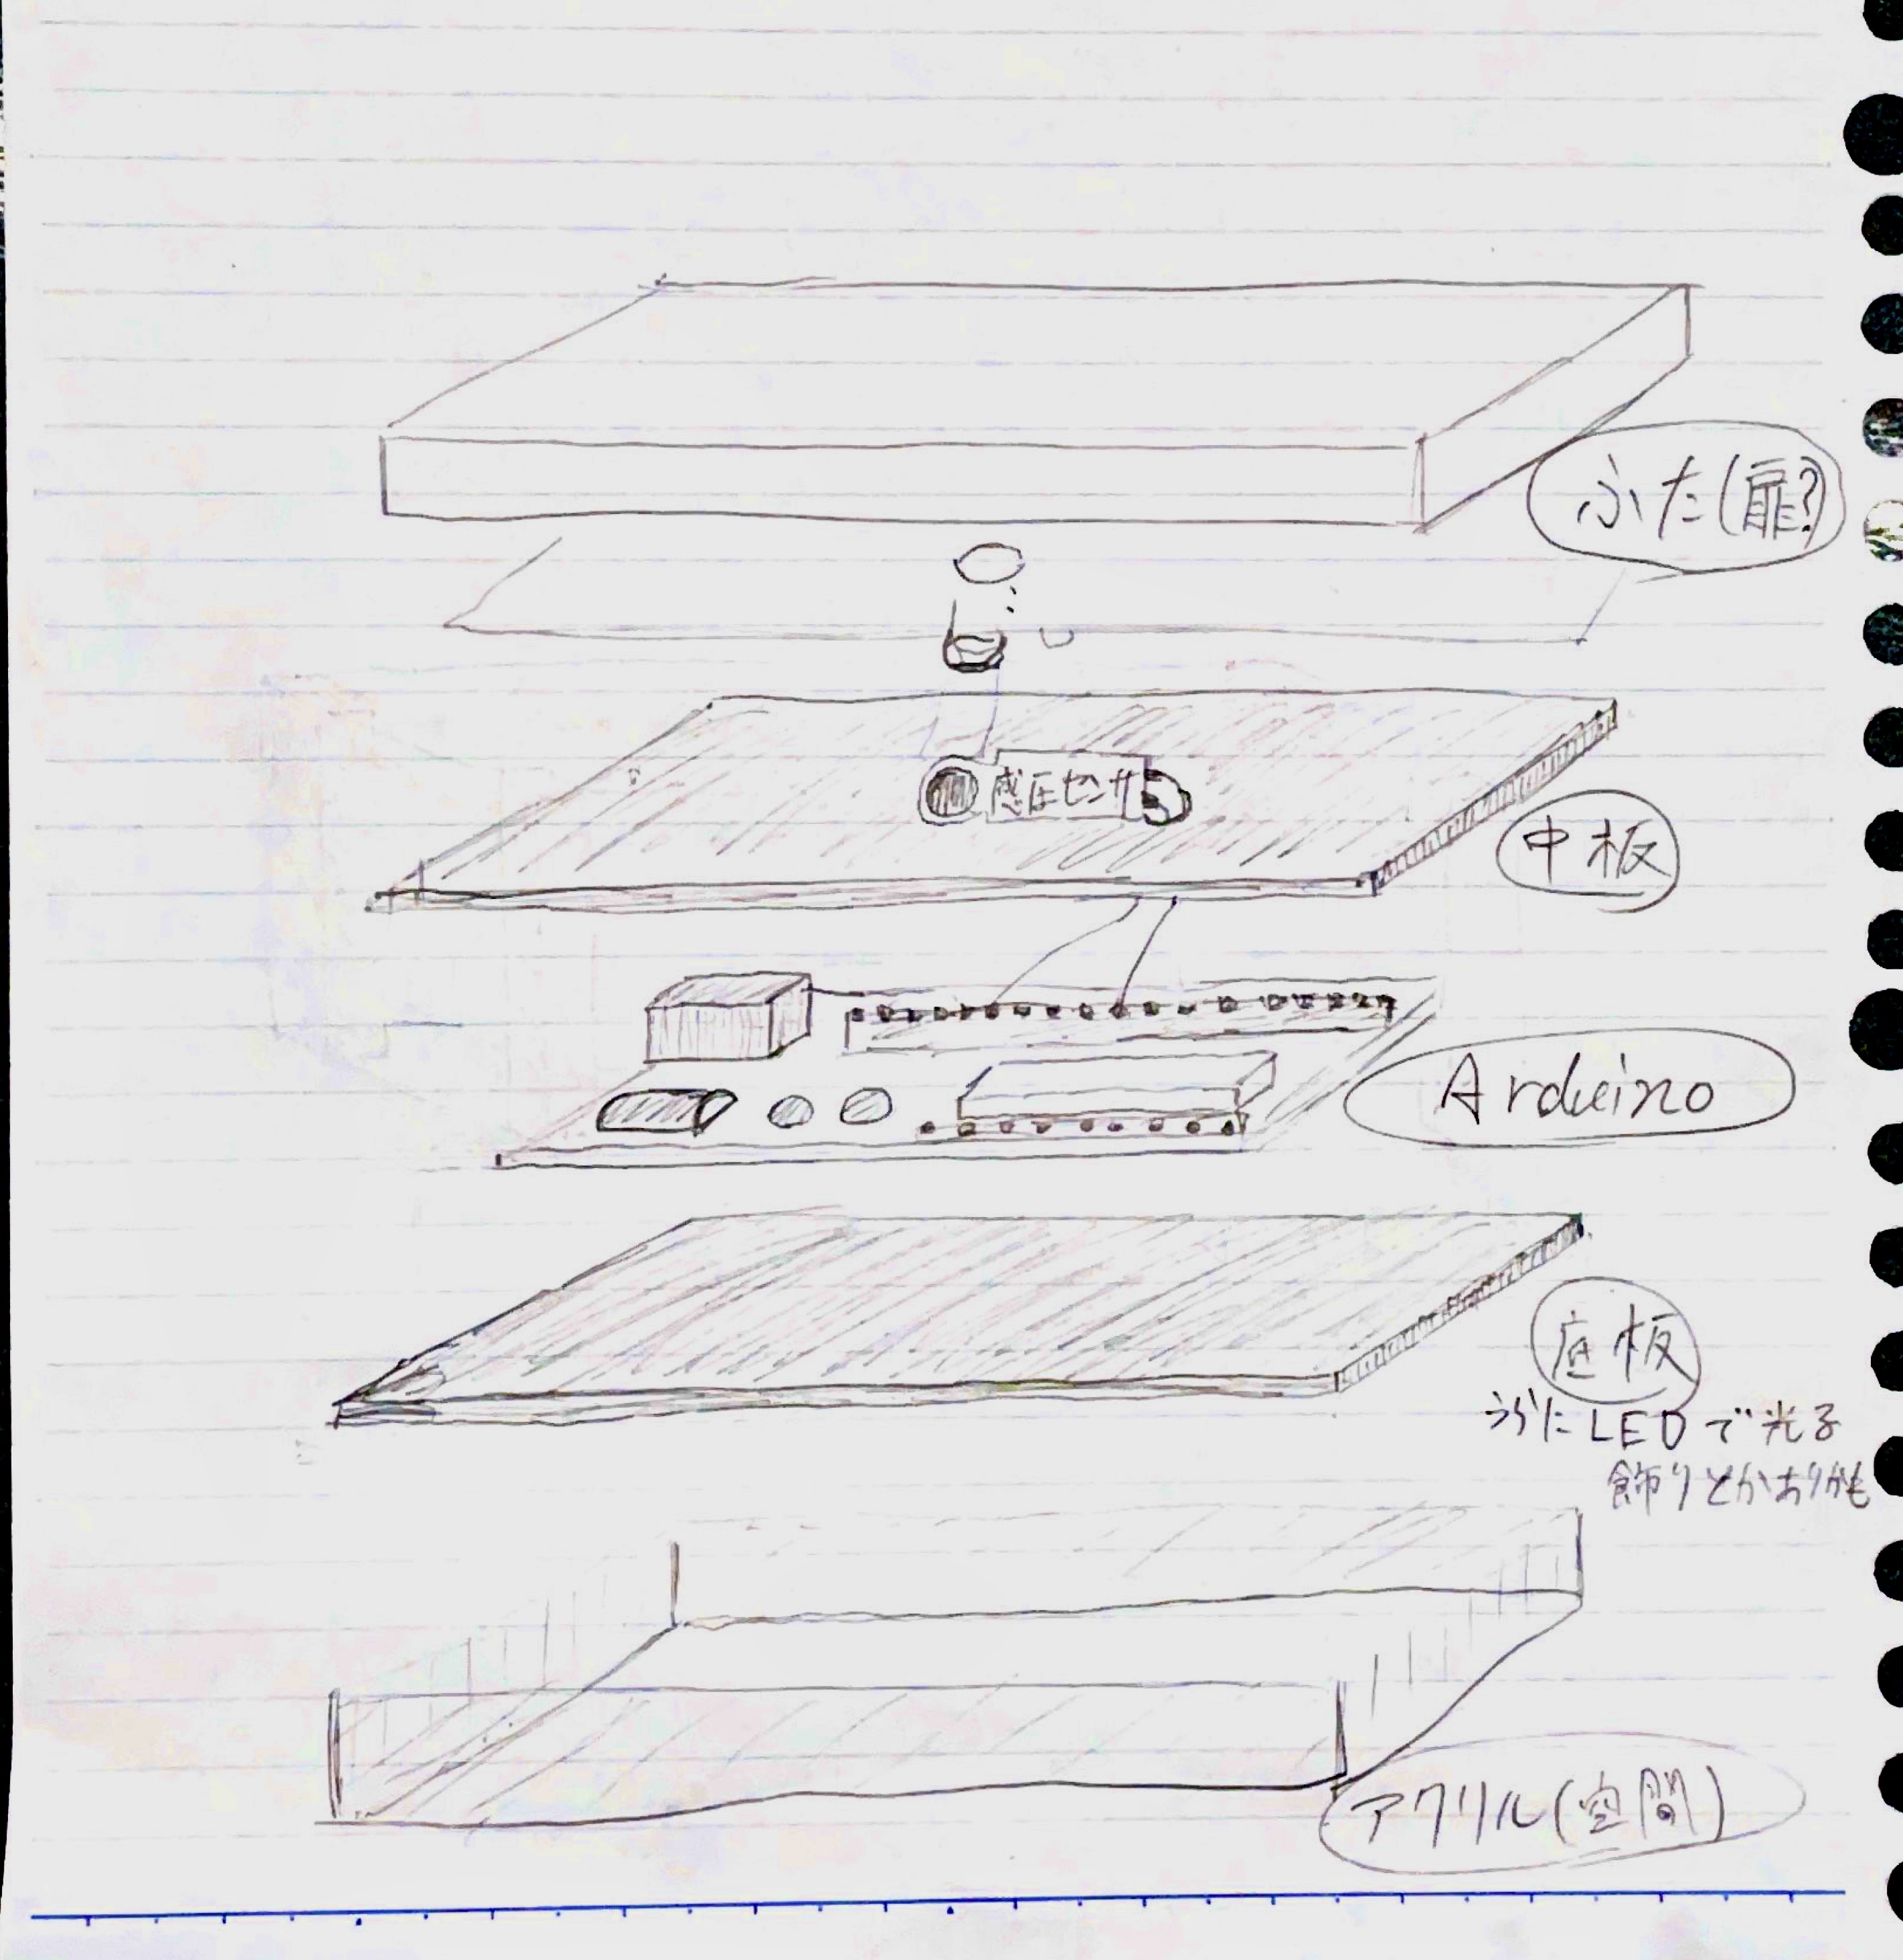 ふた(扉?)
感圧センサ
中板
Arduino
底板
うらにLEDで光る
飾りとかありかも
アクリル(空間)